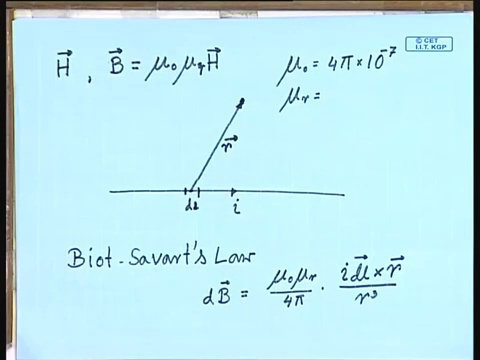 © CET
I.I.T. KGP
H⃗ , B⃗ = μ₀μᵣH⃗
μ₀ = 4π×10⁻⁷
μᵣ =
r⃗
dl i
Biot-Savart's Law
dB⃗ = μ₀μᵣ/4π · i dl⃗ × r⃗/r³